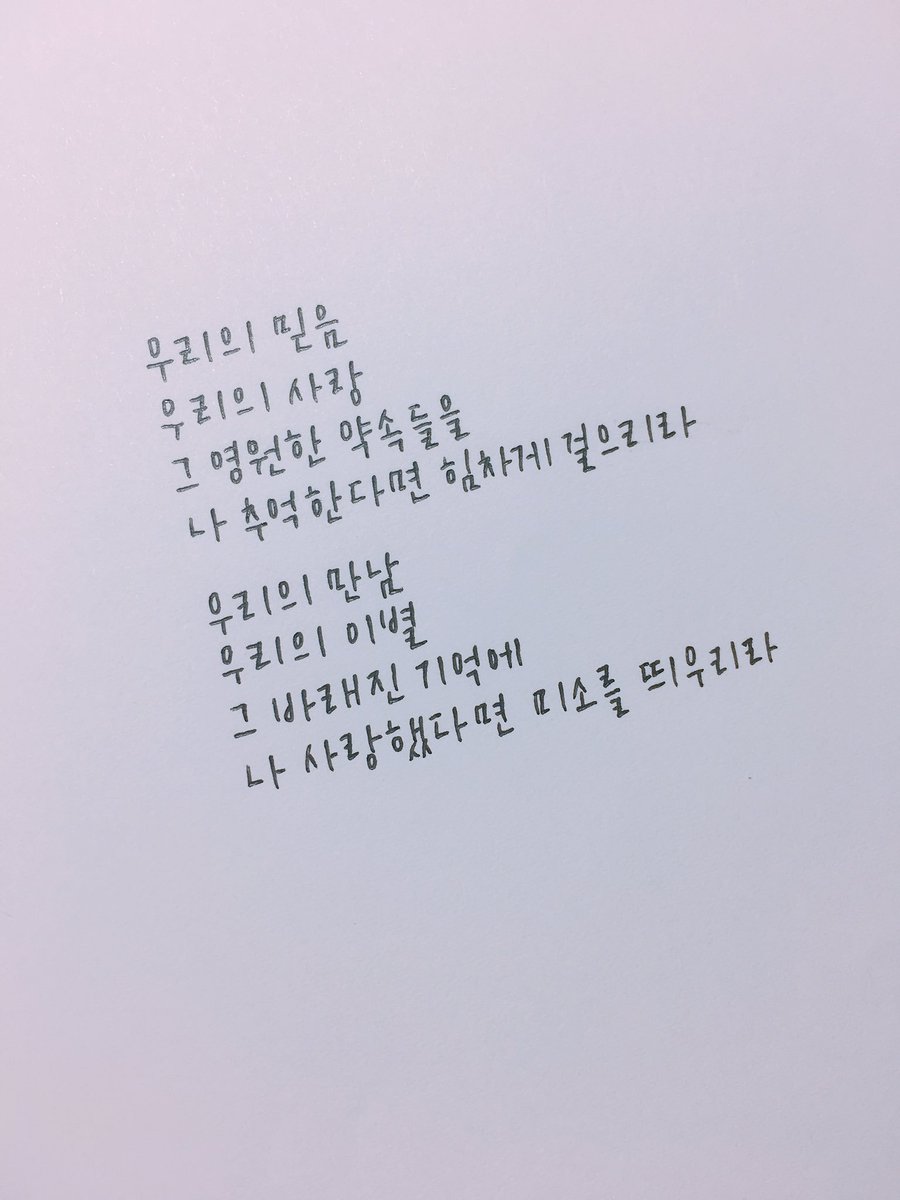 우리의 믿음
우리의 사랑
그 영원한 약속들을
나 추억한다면 힘차게 걸으리라
우리의 만남
우리의 이별
그 바래진 기억에
나 사랑했다면 미소를 띄우리라